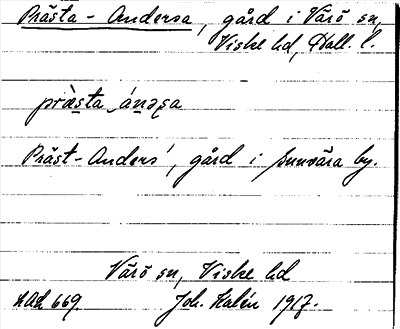 Prästa-Andersa, gård i Värö sn,
Viske hd, Hall. l.
præ̀sta ánəʂa
Präst-Anders', gård i Sunvära by.
Värö sn, Viske hd
669. Joh. Kalén 1917.